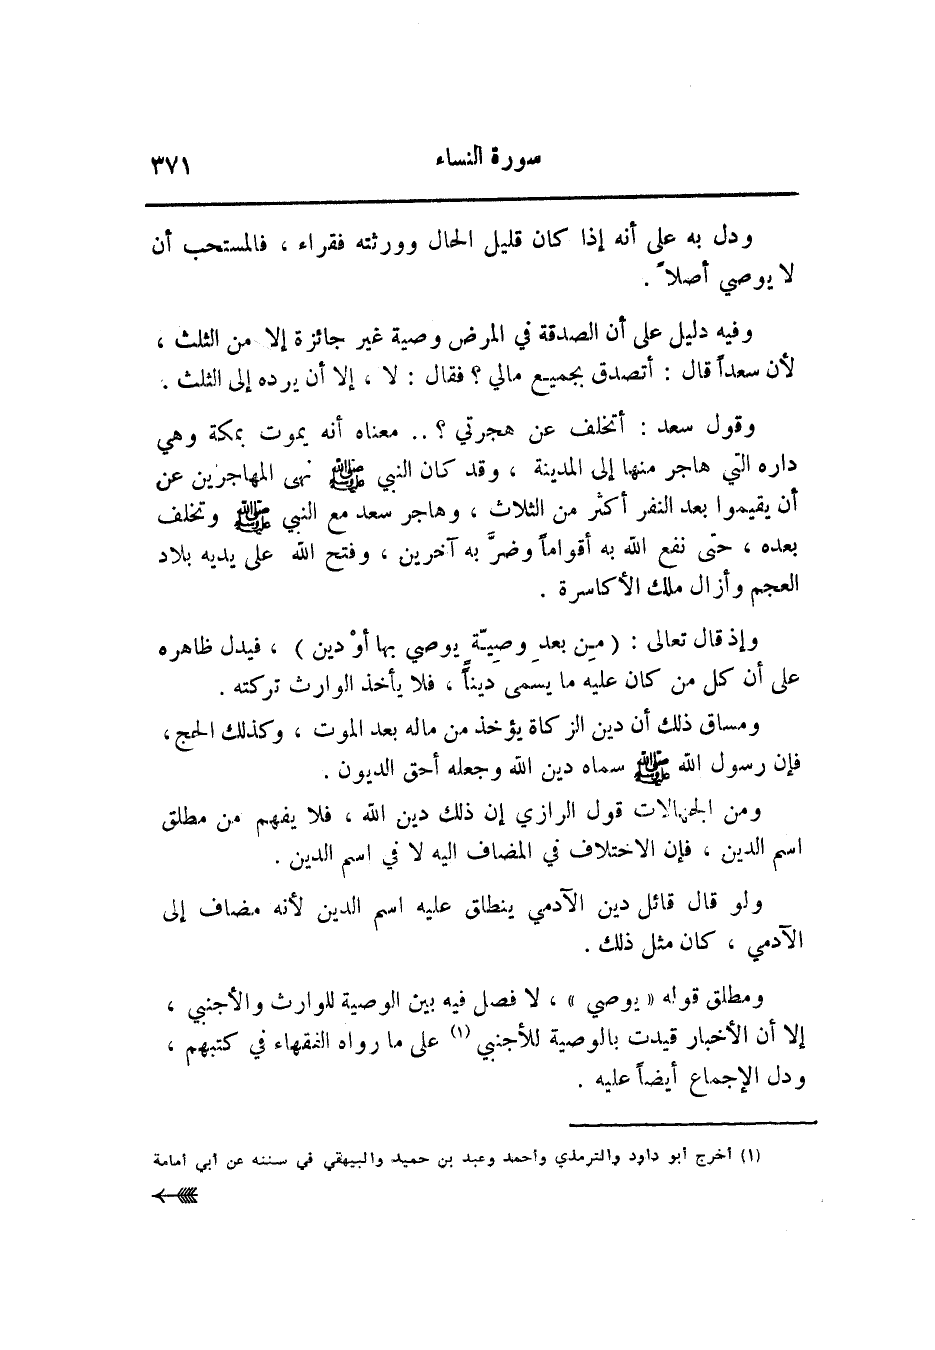 سورة النساء ٣٧١
ودل به على أنه إذا كان قليل الحال وورثته فقراء ، فالمستحب أن
لا يوصي أصلاً .
وفيه دليل على أن الصدقة في المرض وصية غير جائزة إلا من الثلث ،
لأن سعداً قال : أتصدق بجميع مالي ؟ فقال : لا ، إلا أن يرده إلى الثلث .
وقول سعد : أتخلف عن هجرتي ؟ .. معناه أنه يموت بمكة وهي
داره التي هاجر منها إلى المدينة ، وقد كان النبي ﷺ نهى المهاجرين عن
أن يقيموا بعد النفر أكثر من الثلاث ، وهاجر سعد مع النبي ﷺ وتخلف
بعده ، حتى نفع الله به أقواماً وضرَّ به آخرين ، وفتح الله على يديه بلاد
العجم وأزال ملك الأكاسرة .
وإذ قال تعالى : ( مِن بعد وصيّةٍ يوصي بها أوْ دين ) ، فيدل ظاهره
على أن كل من كان عليه ما يسمى ديناً ، فلا يأخذ الوارث تركته .
ومساق ذلك أن دين الزكاة يؤخذ من ماله بعد الموت ، وكذلك الحج ،
فإن رسول الله ﷺ سماه دين الله وجعله أحق الديون .
ومن الجهالات قول الرازي إن ذلك دين الله ، فلا يفهم من مطلق
اسم الدين ، فإن الاختلاف في المضاف اليه لا في اسم الدين .
ولو قال قائل دين الآدمي ينطلق عليه اسم الدين لأنه مضاف إلى
الآدمي ، كان مثل ذلك .
ومطلق قوله « يوصي » ، لا فصل فيه بين الوصية للوارث والأجنبي ،
إلا أن الأخبار قيدت بالوصية للأجنبي (١) على ما رواه الفقهاء في كتبهم ،
ودل الإجماع أيضاً عليه .
(١) أخرج أبو داود والترمذي وأحمد وعبد بن حميد والبيهقي في سننه عن أبي أمامة